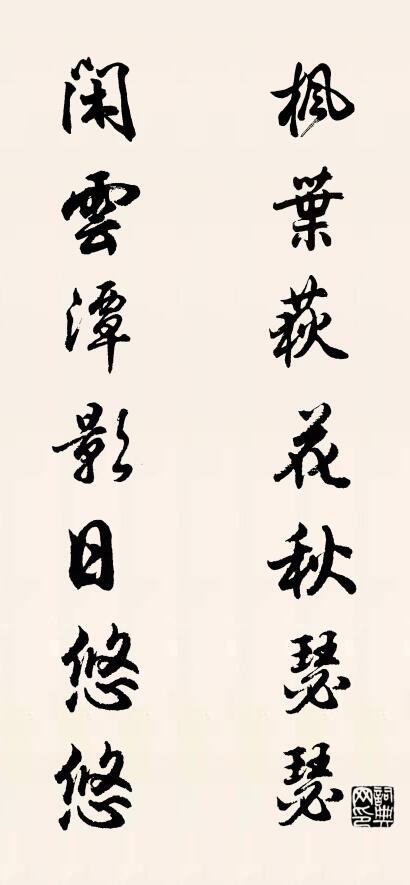 枫葉荻花秋瑟瑟
閑雲潭影日悠悠
詞典网印